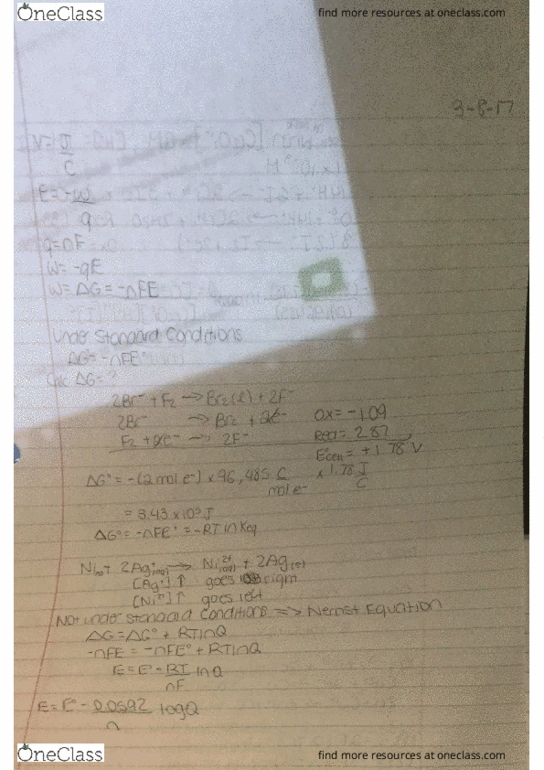 OneClass
find more resources at oneclass.com
3-8-17
E = -w
q
q = nF
W = -qE
W = ΔG = -nFE
Under Standard Conditions
ΔG = -nFE°
Calc ΔG = ?
2Br⁻ + F₂ → Br₂(l) + 2F⁻
2Br⁻ → Br₂ + 2e⁻ OX = -1.09
F₂ + 2e⁻ → 2F⁻ Red = 2.87
E°cell = +1.78 V
ΔG° = -(2 mol e⁻) x 96,485 C/mol e⁻ x 1.78 J/C
= 3.43 x 10⁵ J
ΔG° = -nFE° = -RT ln Keq
Ni(s) + 2Ag⁺(aq) → Ni²⁺(aq) + 2Ag(s)
[Ag⁺] ↑ goes right
[Ni²⁺] ↑ goes left
Not under standard conditions => Nernst Equation
ΔG = ΔG° + RT ln Q
-nFE = -nFE° + RT ln Q
E = E° - RT/nF ln Q
E = E° - 0.0592/n log Q
OneClass
find more resources at oneclass.com